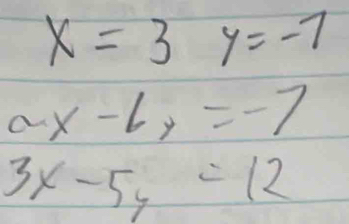 x = 3 y = -7
ax - by = -7
3x - 5y = 12